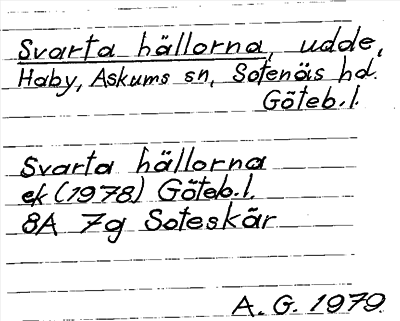 Svarta hällorna, udde,
Haby, Askums sn, Sotenäs hd.
Göteb. l.
Svarta hällorna
ek (1978) Göteb. l.
8A 7g Soteskär
A. G. 1979.